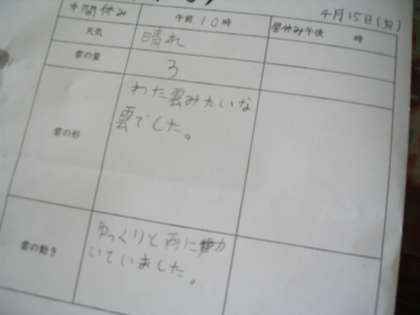 中間休み 午前10時 4月15日(月)
昼休み 午後 時
天気 晴れ
雲の量 3
雲の形 わた雲みたいな
雲でした。
雲の動き ゆっくりと西に動
いていました。